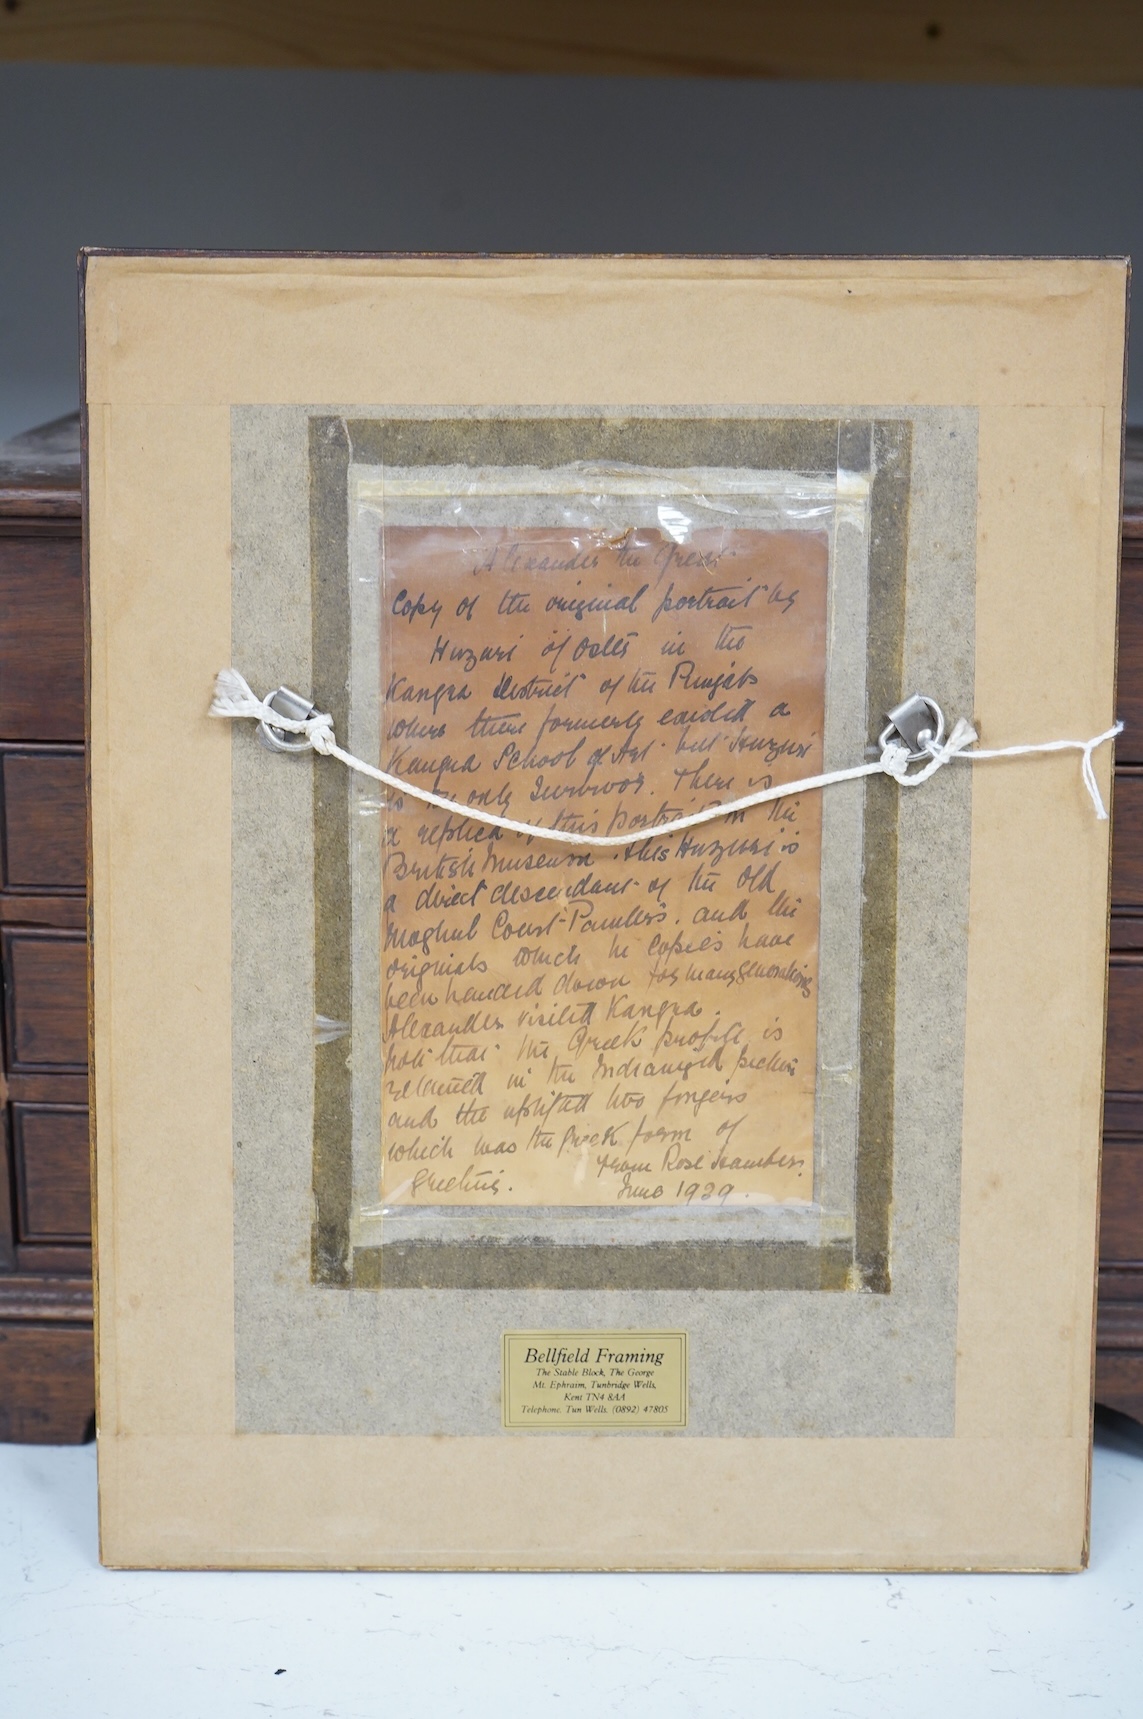 Alexander the Great
Copy of the original portrait by
Huzuri of in the
Kangra District of the Punjab
where there formerly existed a
Kangra School of Art but Huzuri
is the only Survivor. There is
a replica of this portrait in the
British Museum. this Huzuri is
a direct descendant of the Old
Moghul Court-Painters. and the
originals which he copies have
been handed down for many generations
Alexander visited Kangra.
note that the Greek profile is
retained in the picture
and the uplifted two fingers
which was the Greek form of
greeting.
from Rose
June 1929.
Bellfield Framing
The Stable Block, The George
Mt. Ephraim, Tunbridge Wells,
Kent TN4 8AA
Telephone. Tun Wells. (0892) 47805